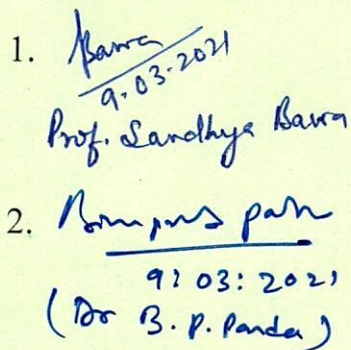 1. Bawa
9.03.2021
Prof. Sandhya Bawa
2.
9: 03: 2021
(Dr B. P. Panda)